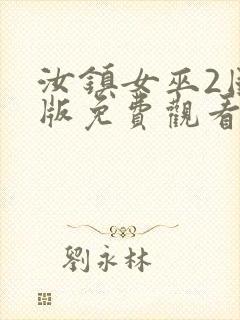 汝鎮女巫2
版免費觀看
劉永林